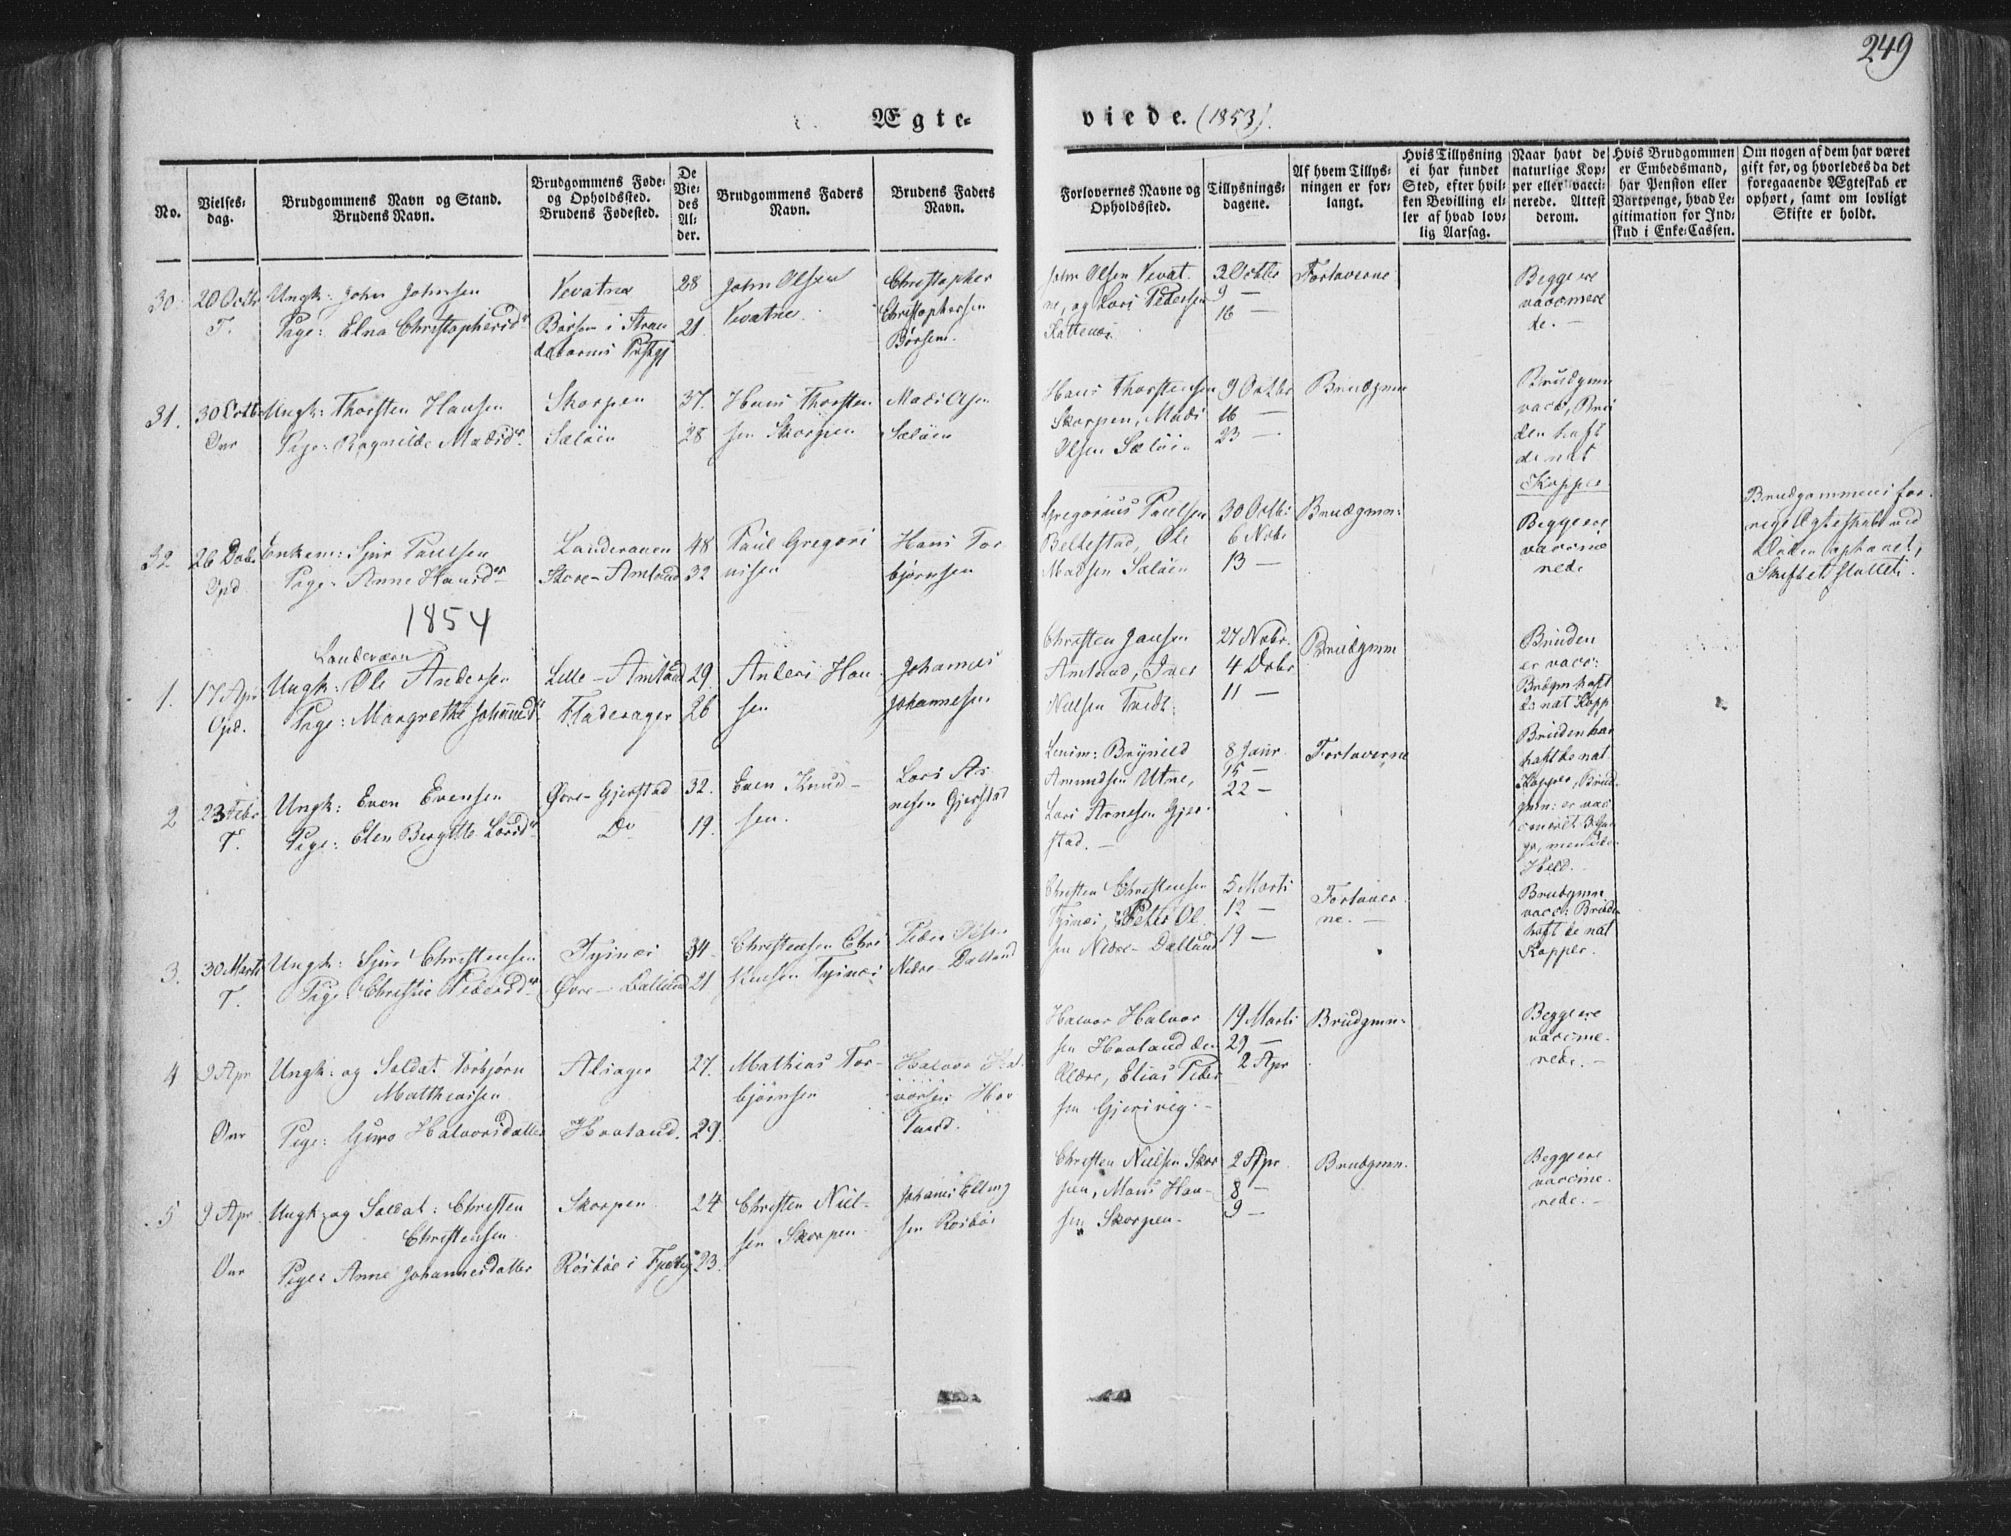 249
Ægte-
viede. (1853).
No.
Vielses-
dag.
Brudgommens Navn og Stand.
Brudens Navn.
Brudgommens Føde-
og Opholdssted.
Brudens Fødested.
De
Vie-
des
Al-
der.
Brudgommens Faders
Navn.
Brudens Faders
Navn.
Forlovernes Navne og
Opholdssted.
Tillysnings-
dagene.
Af hvem Tillys-
ningen er for-
langt.
Hvis Tillysning
ei har fundet
Sted, efter hvil-
ken Bevilling el-
ler af hvad lov-
lig Aarsag.
Naar havt de
naturlige Kop-
per eller vacci-
nerede. Attest
derom.
Hvis Brudgommen
er Embedsmand,
har Pension eller
Vartpenge, hvad Le-
gitimation for Ind-
skud i Enke-Cassen.
Om nogen af dem har været
gift for, og hvorledes da det
foregaaende Ægteskab er
ophørt, samt om lovligt
Skifte er holdt.
30. 20 Octbr Ungk: John Johnsen
T. Pige: Elna Christophersdr
Vevatne
Børsem i Stran
debarms Prstgj
28
21
John Olsen
Vevatne
Christopher
Christophersen
Børsem.
John Olsen Vevat
ne, og Lars Pedersen
2 Octbr
9 —
16 —
Forloverne
Begge ere
vaccinere
de. —
31. 30 Octbr Ungk: Thorsten Hansen
Pige: Ragnilde Madsdr
Skorpen
Sæløen
37.
28
Hans Thorsten
sen Skorpen
Mads Olsen
Sæløen
Hans Thorstensen
Skorpen, Mads
Olsen Sæløen
9 Octbr
16 —
23 —
Brudgmn
Brudgmn
vacc, Bru
den haft
de nat
Kopper
32 26 Decbr Enkem: Sjur Paulsen
Pige: Anne Hansdr
Landeraaen
Store-Amland
48
32
Paul Gregori
ussen
Hans Tor
bjørnsen
Gregorius Paulsen
Beltestad, Ole
Madsen Sæløen
30 Octbr
6 Nobr
13 —
Brudgmn:
Begge ere
vaccine
rede
Brudgommens for-
rige Ægteskab ved
Døden ophævet,
Skiftet sluttet.
1854
Landeværn
1. 17 Apr Ungk: Ole Andersen
Pige: Margrethe Johannesdr
Lille-Amland
Fladerager
29.
26
Anders Han
sen
Johannes
Johannesen
Christen Jansen
Amland, Iver
Nielsen Tvedt
27 Nobr.
4 Decbr
11 —
Brudgmn
Bruden
er vacc:
Brdgm haft
de nat Kopp
2 23 Febr Ungk: Even Evensen
T. Pige: Elen Bergitte Larsdr
Øvre-Gjerstad
Do
32.
19.
Even Knud-
sen.
Lars Ar
nesen Gjerstad
Lensm: Brynild
Amundsen Utne,
Lars Arnesen Gjer-
stad. —
8 Janr
15 —
22 —
Forloverne
Bruden har
haft de nat
Kopper, Brud
gmn: er vac
cineret 3 Gan
ge, men uden
Held.
3. 30 Marts Ungk: Sjur Christensen
T. Pige: Christie Pedersdr
Tysnæs
Øvre-Dallund
34.
21
Christensen Chri
stensen Tysnæs
Peder Olsen
Nedre-Dalland
Christen Christensen
Tysnæs, Peder Ol
sen Nedre-Dallund
5 Marts
12 —
19 —
Forlover
ne. —
Brudgmn
vacc: Bruden
haft de nat
Kopper.
4 9 Apr Ungk: og Soldat Torbjørn
Matthiassen
Pige: Guro Halvorsdatter
Alsager
Hovland.
27.
29.
Mathias Tor-
bjørnsen
Halvor Hal
vorsen Hov
land.
Halvor Halvor
sen Hovland den
Ældre, Elias Peder
sen Gjersvig. —
19 Marts
29 —
2 Apr
Brudgmn:
Begge ere
vaccine-
rede. —
5 9 Apr. Ungk: og Soldat: Christen
Christensen
Pige: Anne Johannesdatter
Skorpen
24
23.
Christen Niel-
sen Skorpen
Johannes Elling
sen Røsbøe
Christen Nielsen Skor
pen, Mons Han-
sen Skorpen-
2 Apr.
8 —
9 —
Brudgmn.
Begge ere
vaccine-
rede. —